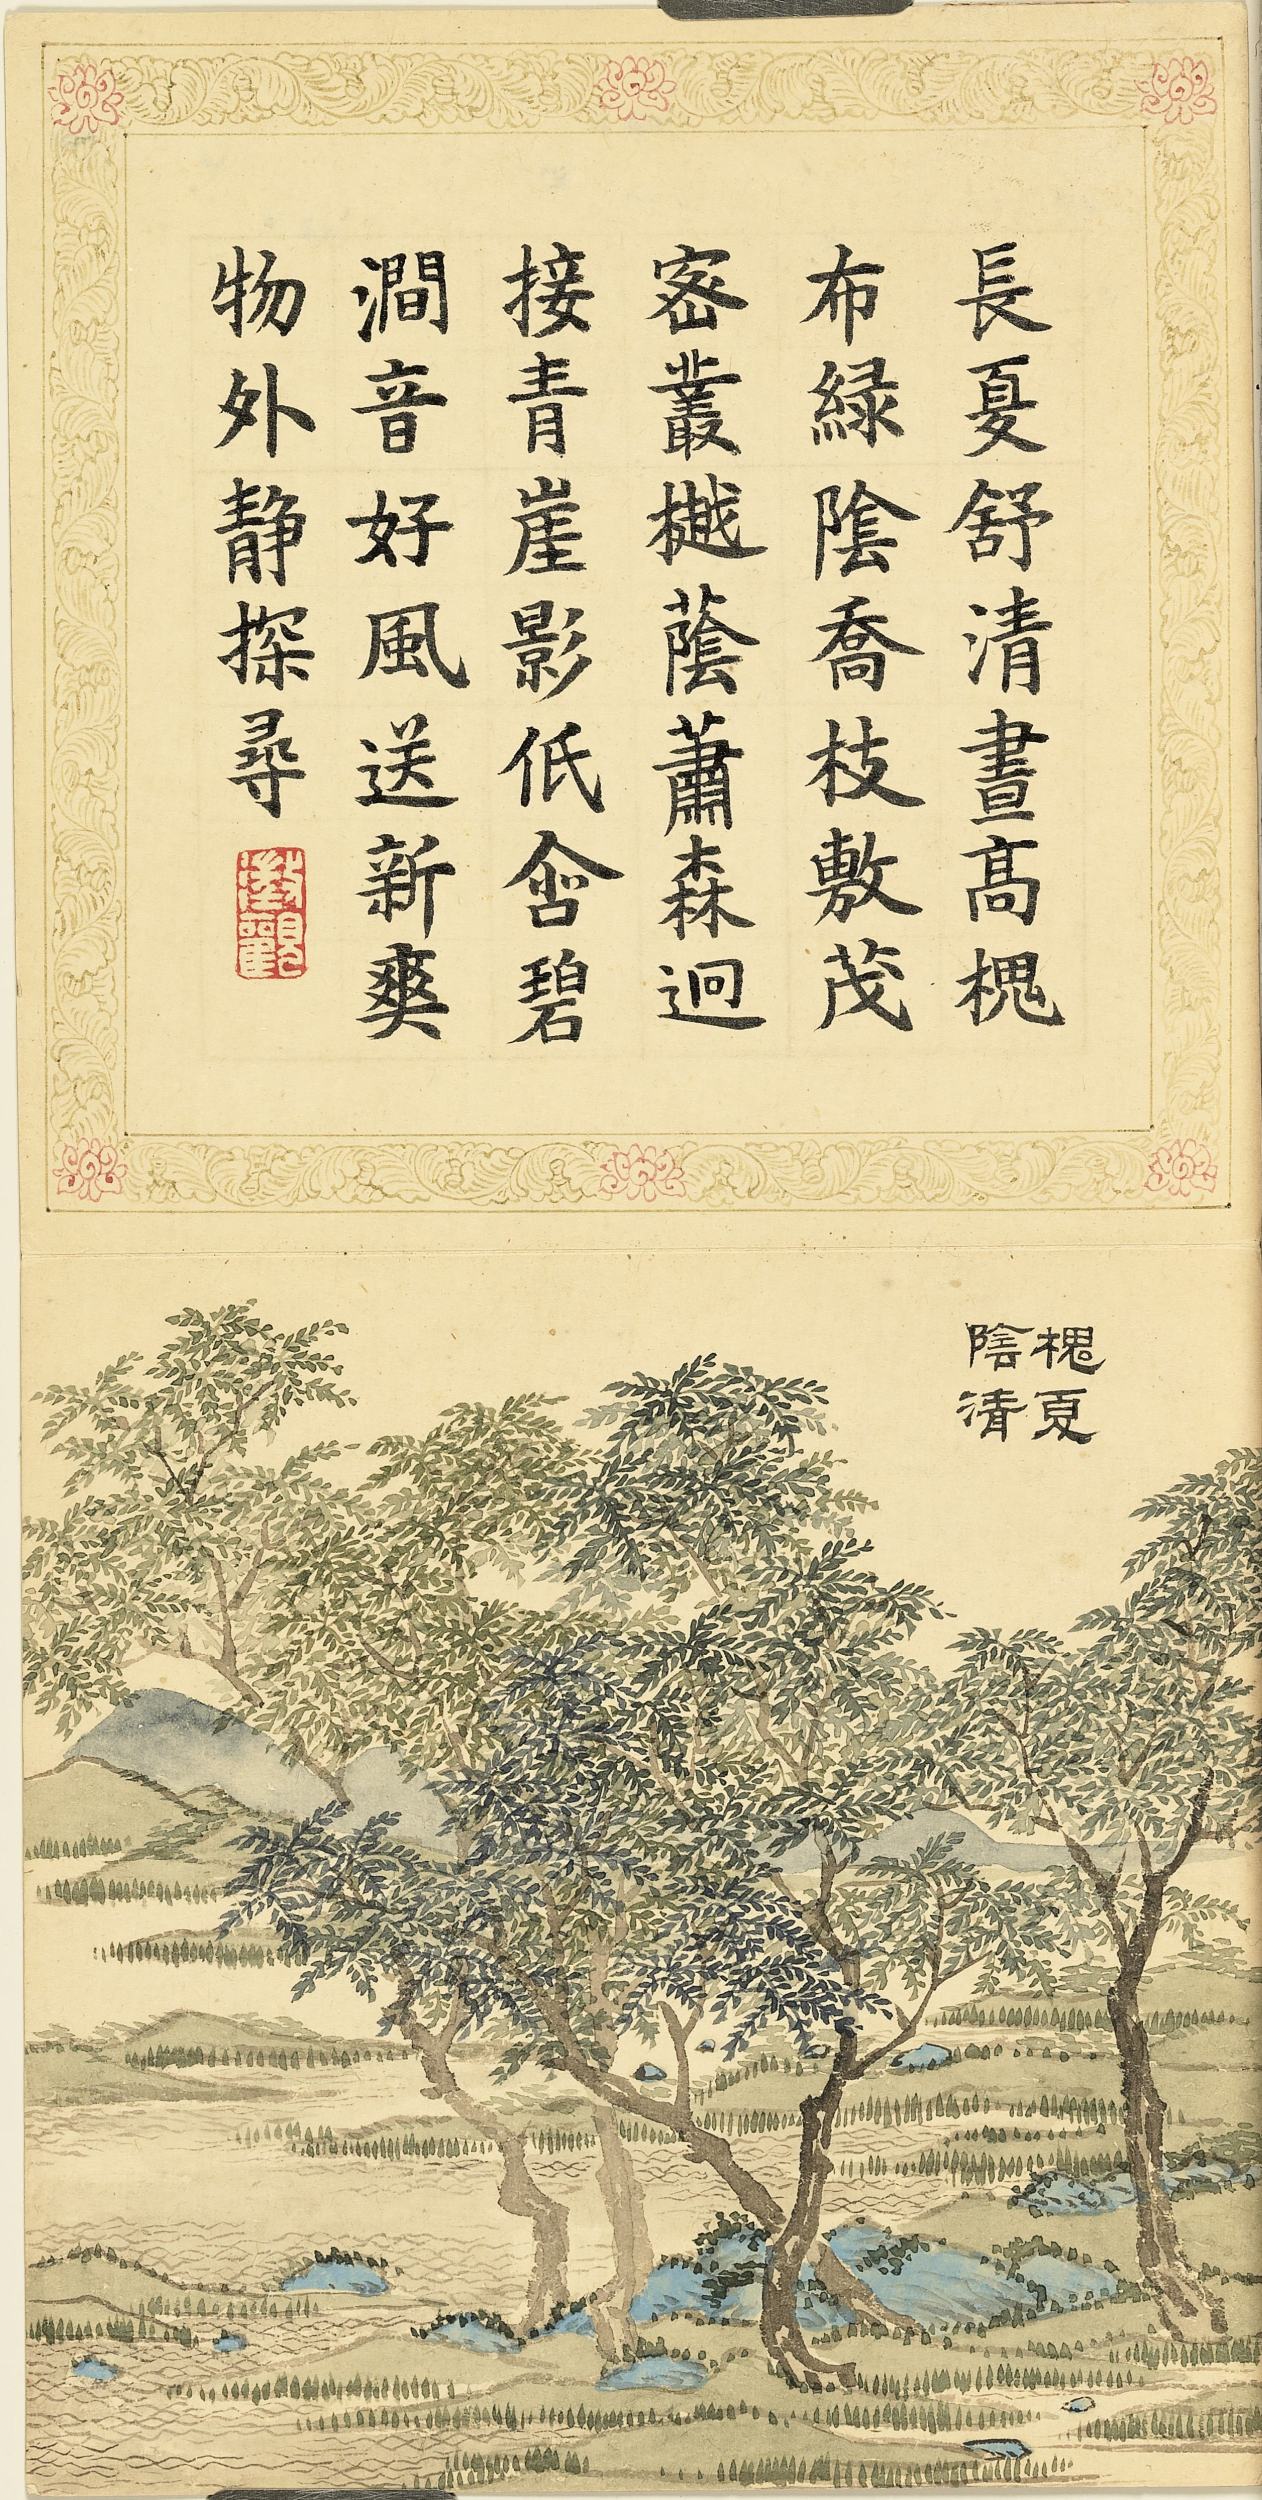 長夏舒清晝高槐
布緑陰喬枝敷茂
密叢樾蔭蕭森迥
接青崖影低含碧
澗音好風送新爽
物外静探尋
槐夏
陰清